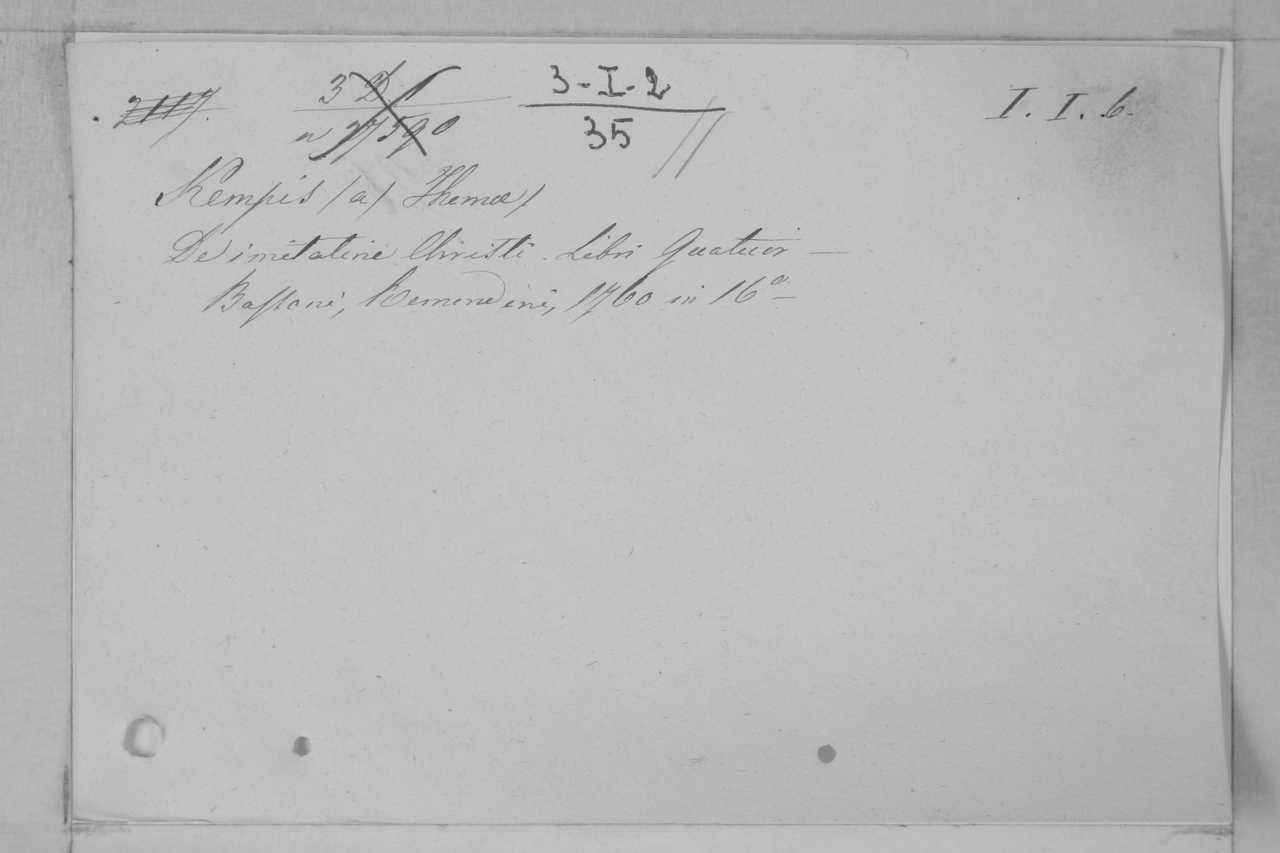 2117. 3-I-2 I. I. 6.
35
Kempis (a) Thomæ)
De imitatine Christi. Libri Quatuor —
Bassani, Remondini, 1760 in 16º